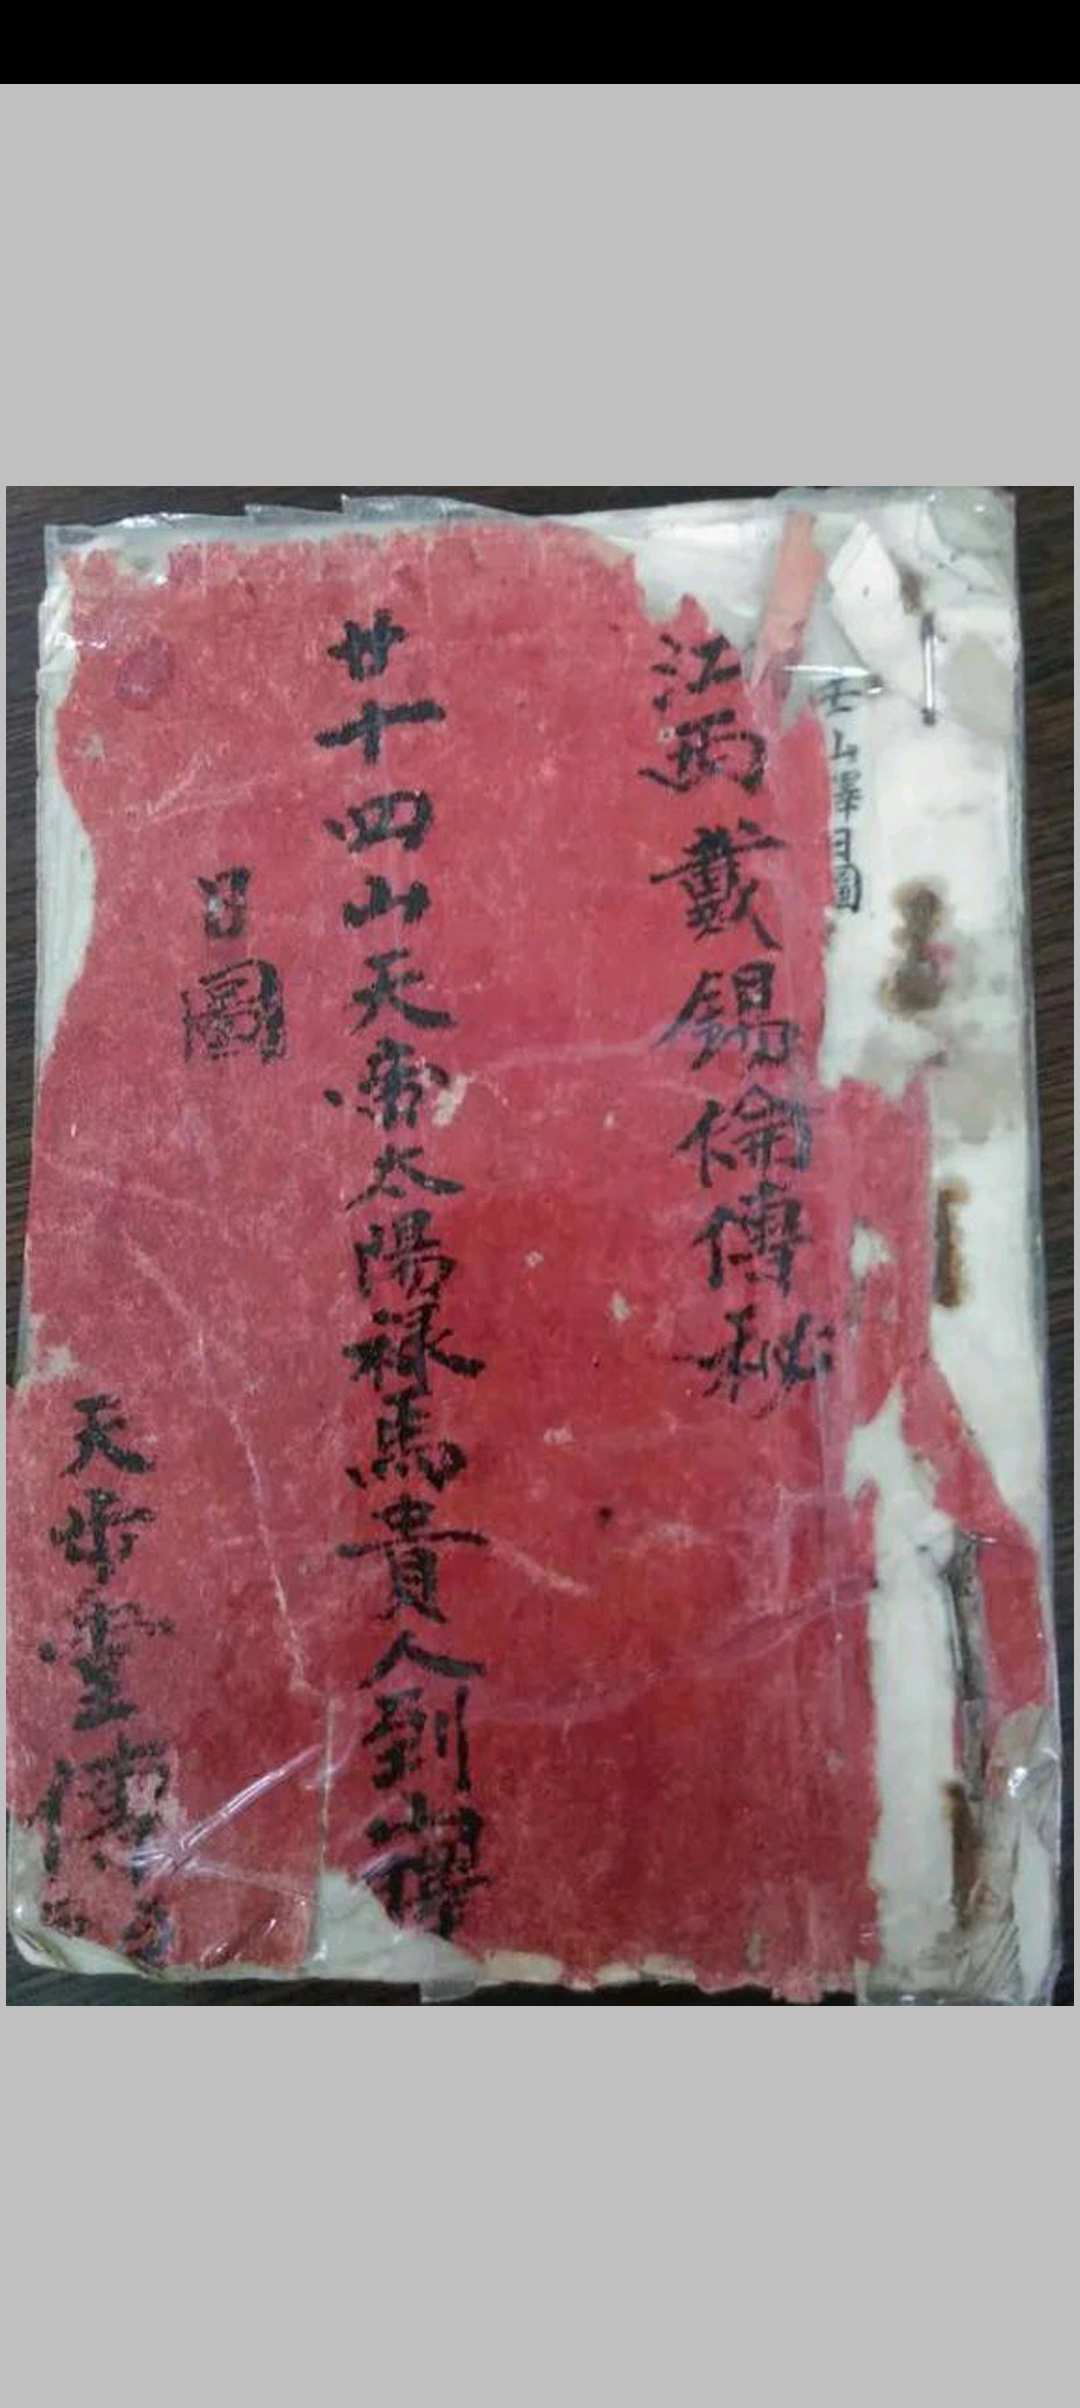 壬山擇日圖
江西戴錫倫傳秘
廿十四山天太陽禄馬貴人到山擇
日圖
天堂傳